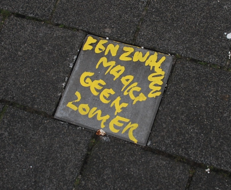 EEN ZWALUW
MAAKT
GEEN
ZOMER